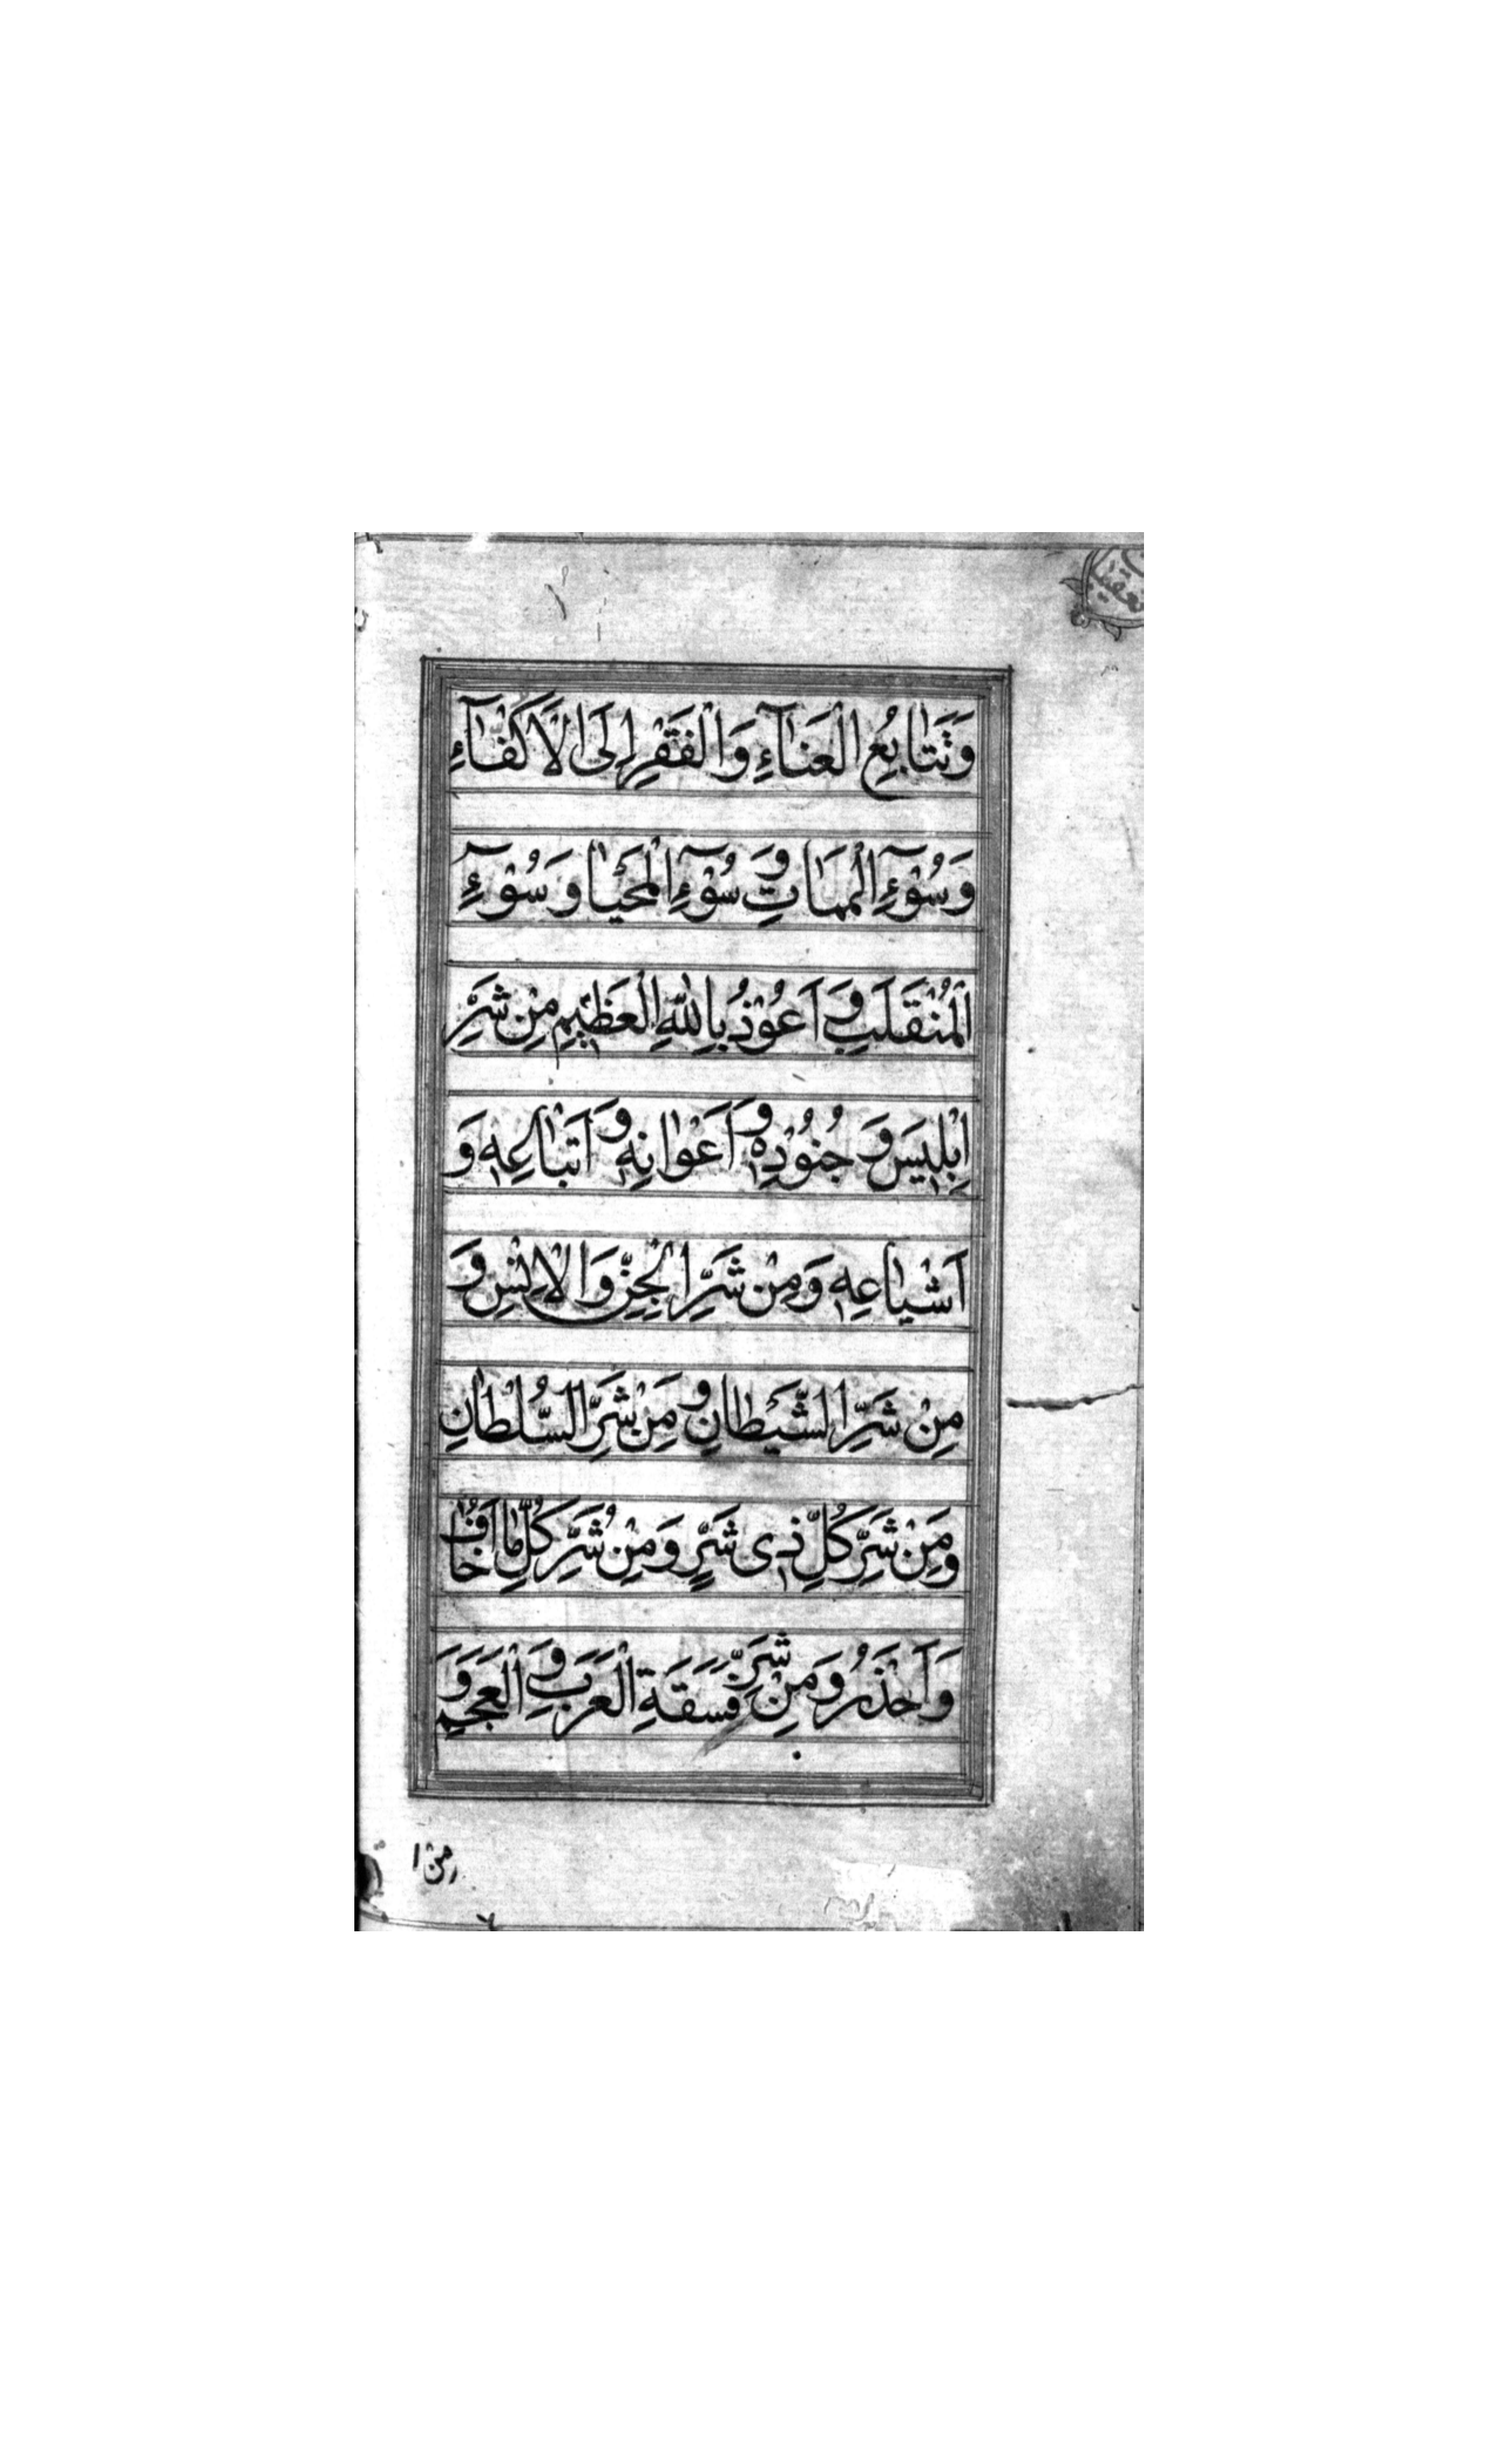 تعقيبا
وَتَتٰابُعِ الْعَنٰآءِ وَالْفَقْرِ اِلَى الْاَكْفٰآءِ
وَسُوْٓءِ الْمَمٰاتِ وَسُوْٓءِ الْمَحْيٰا وَسُوْٓءِ
الْمُنْقَلَبِ وَاَعُوْذُ بِاللّٰهِ الْعَظٖيمِ مِنْ شَرِّ
اِبْلٖيسَ وَجُنُوْدِهٖ وَاَعْوٰانِهٖ وَاَتْبٰاعِهٖ وَ
اَشْيٰاعِهٖ وَمِنْ شَرِّ الْجِنِّ وَالْاِنْسِ وَ
مِنْ شَرِّ الشَّيْطٰانِ وَمِنْ شَرِّ السُّلْطٰانِ
وَمِنْ شَرِّ كُلِّ ذٖى شَرٍّ وَمِنْ شَرِّ كُلِّ مٰا اَخٰافُ
وَاَحْذَرُ وَمِنْ شَرِّ فَسَقَةِ الْعَرَبِ وَالْعَجَمِ وَ
مِنْ ا